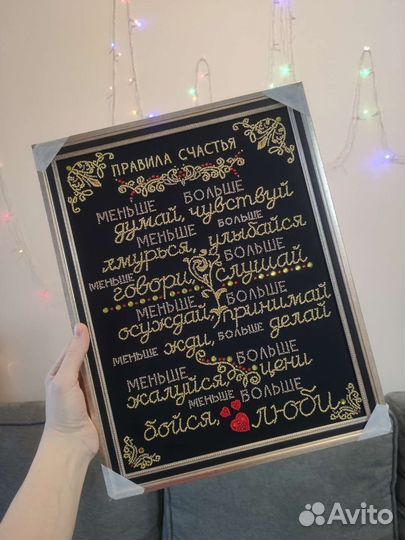 ПРАВИЛА СЧАСТЬЯ
МЕНЬШЕ БОЛЬШЕ
думай, чувствуй
МЕНЬШЕ БОЛЬШЕ
хмурься, улыбайся
МЕНЬШЕ БОЛЬШЕ
говори, слушай
МЕНЬШЕ БОЛЬШЕ
осуждай, принимай
МЕНЬШЕ жди, БОЛЬШЕ делай
МЕНЬШЕ БОЛЬШЕ
жалуйся, цени
МЕНЬШЕ БОЛЬШЕ
бойся, ЛЮБИ
Avito